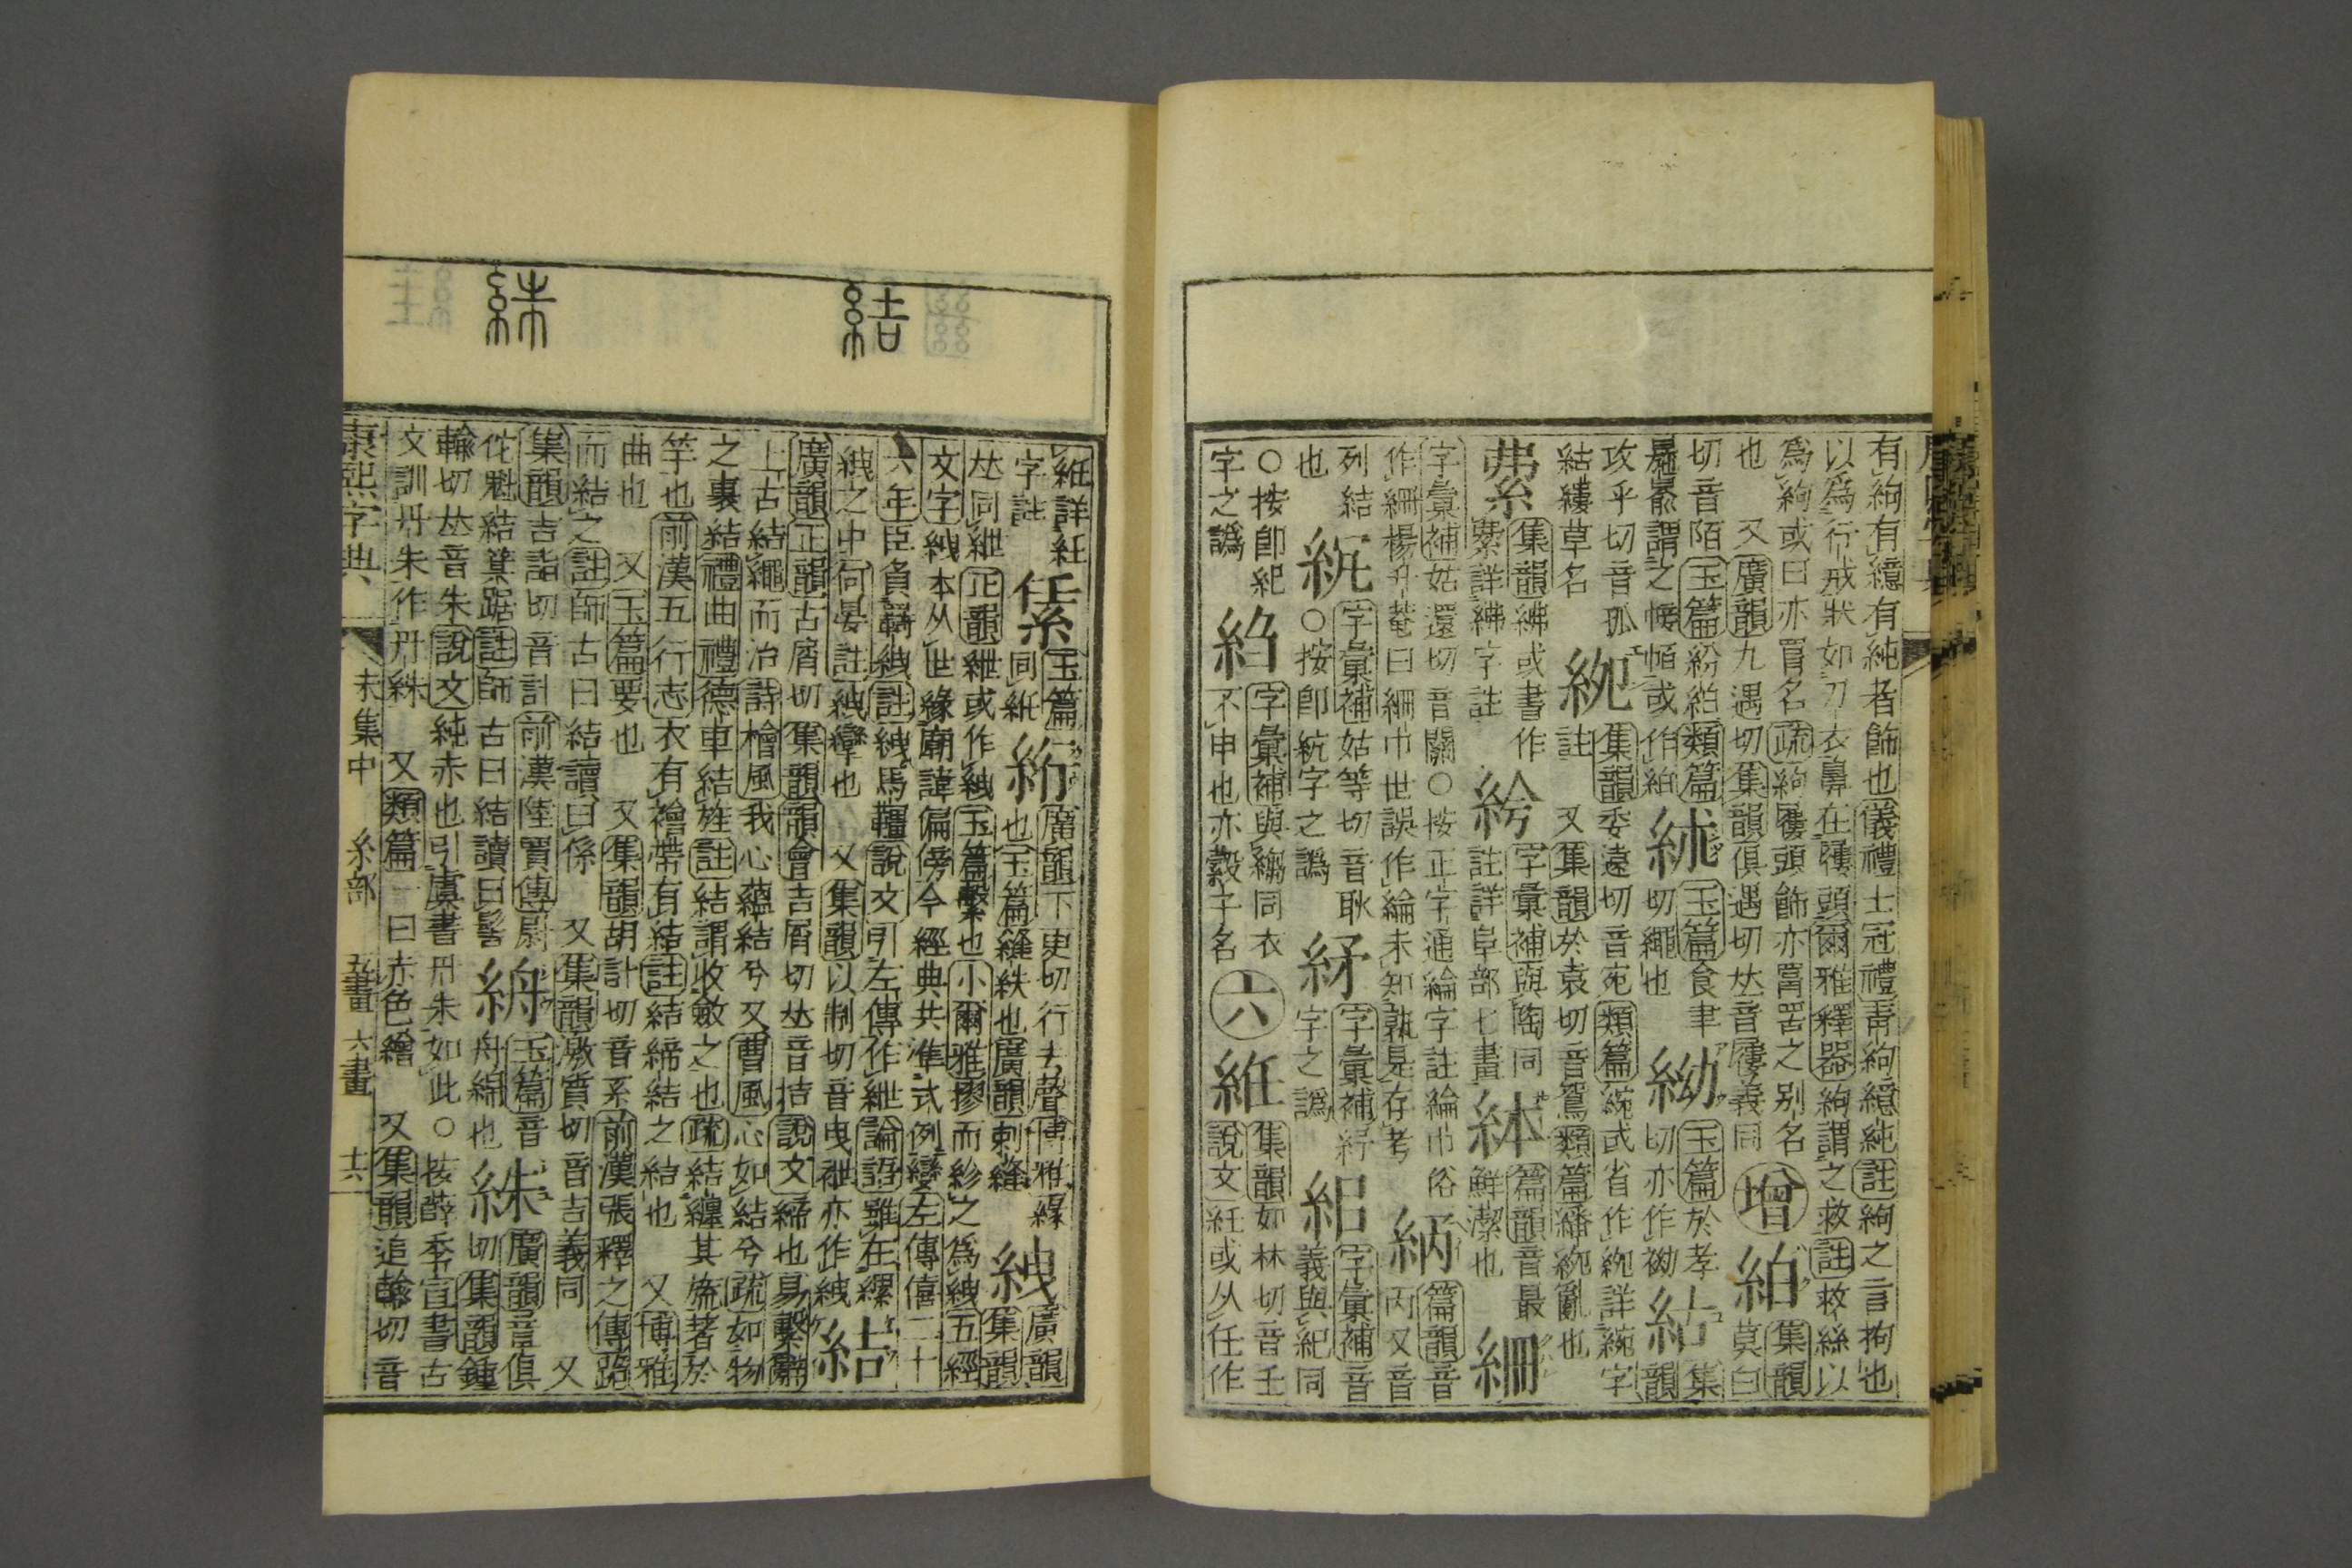 有絇有繶有純者飾也儀禮士冠禮靑絇繶純註絇之言拘也
以爲行戒狀如刀衣鼻在屨頭爾雅釋器絇謂之救註救絲以
爲絇或曰亦罥名疏絇屨頭飾亦罥罟之别名
也 又廣韻九遇切集韻俱遇切𠀤音屨義同
增
絈 集韻莫白
切音陌玉篇紛絈類篇
謂之幭帞或作絈
絉 玉篇食聿
切繩也
玉篇於孝
切亦作袎
集韻
攻乎切音孤
結縷草名
集韻委遠切音宛類篇綩或省作 詳綩字
註 又集韻於袁切音鴛類篇繙 亂也
集韻紼或書作
詳紼字註
字彙補與 同
註詳阜部七畫
篇韻音最
鮮潔也
字彙補姑還切音關○按正字通綸字註綸巾俗
作 楊升菴曰 巾世誤作綸未知孰是存考
篇韻音
丙又音
列結
也
字彙補姑等切音耿
○按卽 字之譌
字彙補紓
字之譌
字彙補音
義與紀同
○按卽紀
字之譌
字彙補與縐同衣
不申也亦縠字名
六
絍 集韻如林切音壬
說文紝或从任作
結
絑
絍詳紝
字註
玉篇
同紝
絎 廣韻下更切行去聲博雅緣
也玉篇縫紩也廣韻刺縫
絏 廣韻
集韻
𠀤同紲正韻紲或作絏玉篇繫也小爾雅摎而紾之爲絏五經
文字絏本从世緣廟諱偏傍今經典共準式例變左傳僖二十
六年臣負羈絏註絏馬韁說文引左傳作紲論語雖在縲
絏之中何晏註絏攣也 又集韻以制切音曳袣亦作絏
結
廣韻正韻古屑切集韻韻會吉屑切𠀤音拮說文締也易繫辭
上古結繩而治詩檜風我心蘊結兮又曹風心如結兮疏如物
之裏結禮曲禮德車結旌註結謂收斂之也疏結纏其旒著於
竿也前漢五行志衣有襘帶有結註結締結之結也 又博雅
曲也 又玉篇要也 又集韻胡計切音系前漢張釋之傳跪
而結之註師古曰結讀曰係 又集韻激質切音吉義同 又
集韻吉詣切音計前漢陸賈傳尉
佗魋結箕踞註師古曰結讀曰髻
玉篇音
舟綿也
絑 廣韻章俱
切集韻鍾
輸切𠀤音朱說文純赤也引虞書丹朱如此○按薛季宣書古
文訓丹朱作丹絑 又類篇一曰赤色繒 又集韻追輸切音
康熙字典 未集中 糸部 五畫 六畫 十六